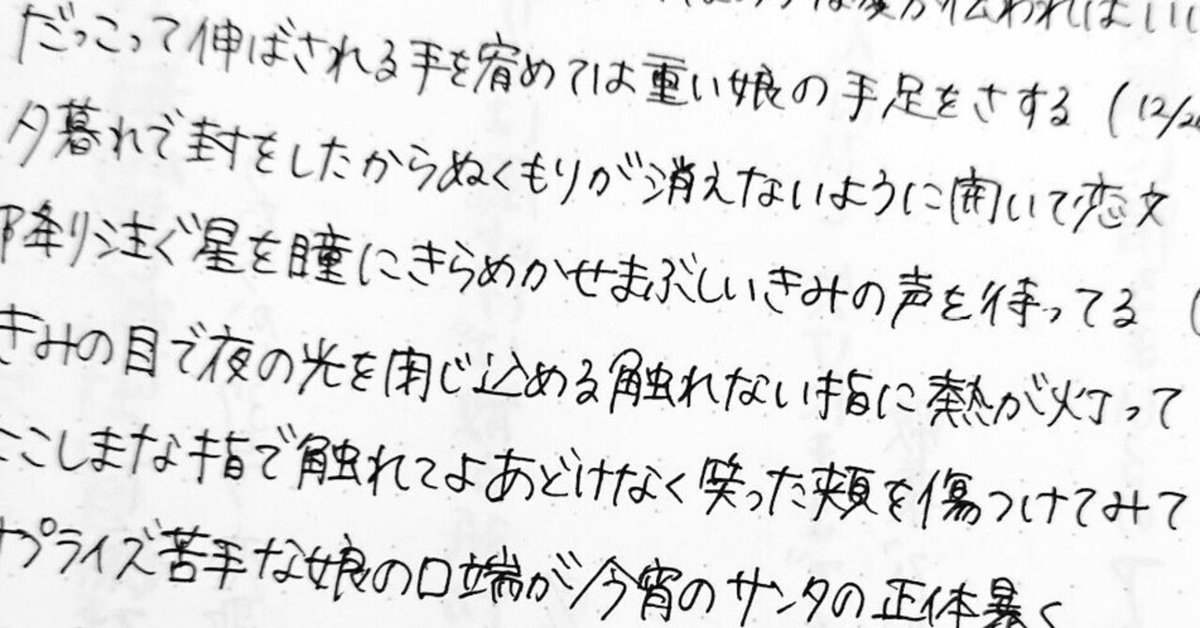 が伝わればいい
だっこって伸ばされる手を宥めては重い娘の手足をさする (12/2
夕暮れで封をしたからぬくもりが消えないように開いて恋文
降り注ぐ星を瞳にきらめかせまぶしいきみの声を待ってる (
きみの目で夜の光を閉じ込める触れない指に熱が灯って
よこしまな指で触れてよあどけなく笑った頬を傷つけてみて
サプライズ苦手な娘の口端が今宵のサンタの正体暴く